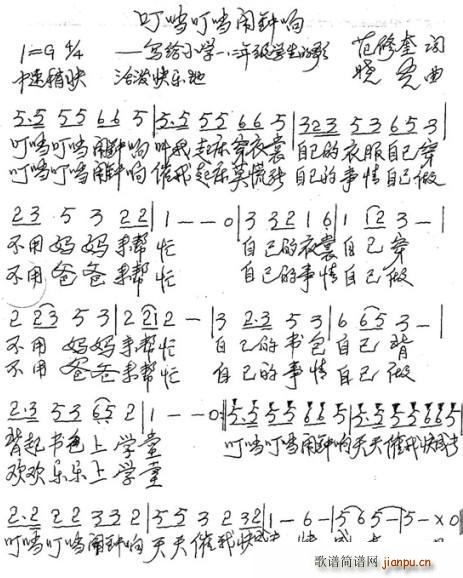 叮当叮当闹钟响
1=G 4/4 ——写给小学一、二年级学生的歌 范修奎 词
中速稍快 活泼快乐地 晓亮 曲
5.5 55 66 5 | 5.5 55 66 5 | 323 53 65 3 |
叮当叮当闹钟响 叫我起床穿衣裳 自己的衣服自己穿
叮当叮当闹钟响 催我起床莫慌张 自己的事情自己做
23 5 3 22 | 1 - - 0 | 3 32 1 6 | 1 12 3 - |
不用妈妈来帮忙 自己的衣裳自己穿
不用爸爸来帮忙 自己的事情自己做
2 23 5 3 | 2 21 2 - | 3 2.3 5 3 | 6 65 3 - |
不用妈妈来帮忙 自己的书包自己背
不用爸爸来帮忙 自己的事情自己做
2.3 53 65 2 | 1 - - 0 | 5.5 55 66 5 | 5.5 55 66 5 |
背起书包上学堂 叮当叮当闹钟响天天催我快成长
欢欢乐乐上学堂
2.2 22 33 2 | 55 3 2 32 | 1 - 6 - | 5 6 5 - | 5 - x 0 |
叮当叮当闹钟响 天天催我快成长 快成
歌谱简谱网 jianpu.cn